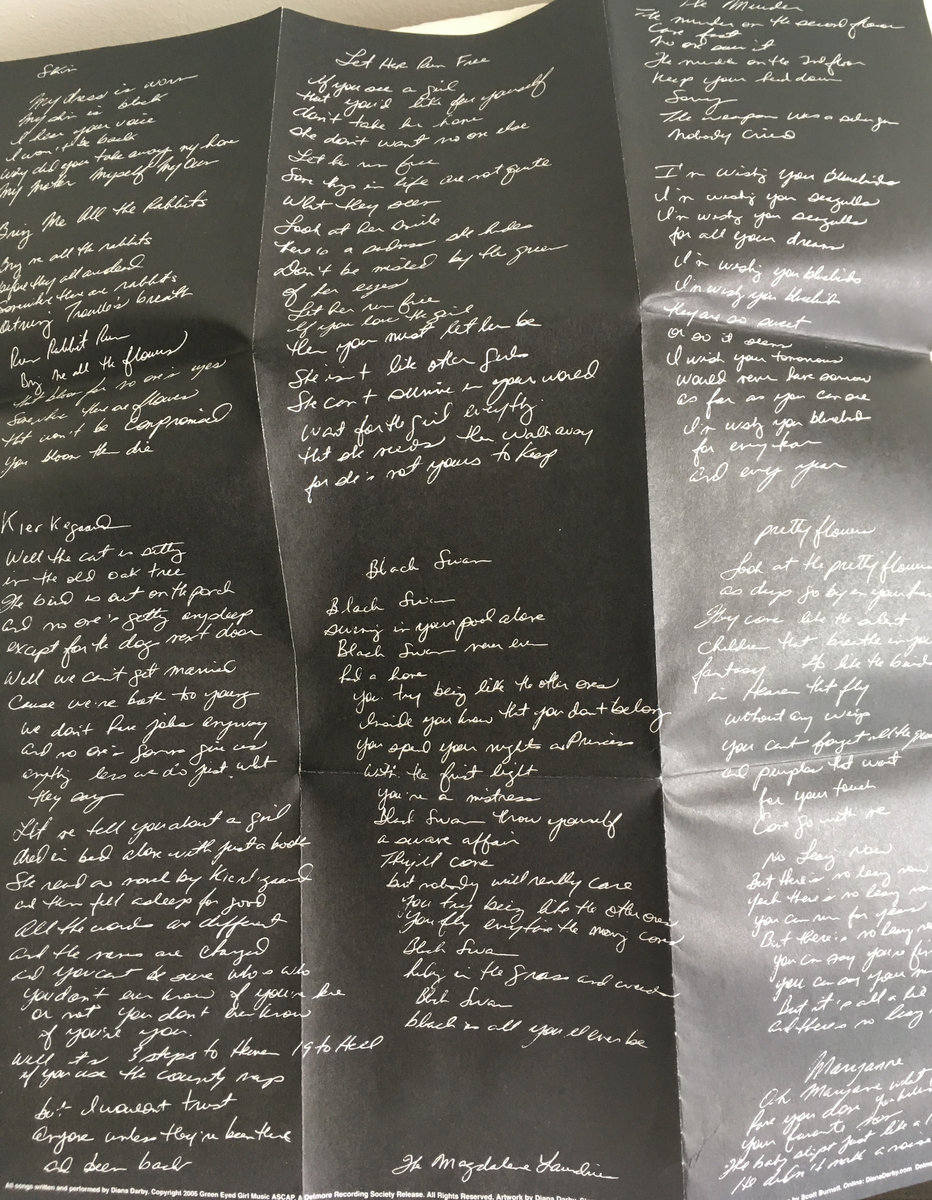 Skin
My dress is worn
My skin is black
I hear your voice
I won't be back
why did you take away my home
My mother Myself My own
Bring Me All the Rabbits
Bring me all the rabbits
before they all
somewhere there are rabbits
breath
Run Rabbit Run
Bring me all the flowers
that bloom for no one's eyes
Somewhere there are flowers
that won't be compromised
You bloom then die
Kierkegaard
Well the cat is sitting
in the old oak tree
The bird is out on the porch
and no one's getting any sleep
except for the dog next door
Well we can't get married
Cause we're both to young
We don't have jobs anyway
and no one's gonna give us
anything less we do just what
they say
Let me tell you about a girl
died in bed alone with just a book
She read a novel by Kierkegaard
and then fell asleep for good
All the words are different
and the names are changed
and you can't be sure who's who
You don't even know if you're here
or not you don't even know
if you're you.
Well it's 3 steps to Heaven 19 to Hell
if you use the county maps
but I wouldn't trust
anyone unless they've been there
and been back
Let Her Run Free
If you see a girl
that you'd like for yourself
don't take her home
she don't want no one else
Let her run free
Some things in life are not quite
What they seem
Look at her smile
There is a sadness she hides
Don't be misled by the green
of her eyes
Let her run free
If you love the girl
then you must let her be
She isn't like other girls
She can't survive in your world
Want for the girl everything
that she needs then walk away
for she's not yours to keep
Black Swan
Black Swan
swimming in your pool alone
Black Swan never even
had a home
You try being like the other ones
Inside you know that you don't belong
You spend your nights as Princess
With the first light
You're a mistress
Black Swan throw yourself
a swave affair
They'll come
but nobody will really care
You try being like the other ones
You fly everytime the morning comes
Black Swan
hiding in the grass and weeds
Black Swan
black is all you'll ever be
The Magdalene Laundries
The Murder
The murder on the second floor
Came fast
No one saw it
The murder on the 2nd floor
Keep your head down
Sorry
The weapon was a
Nobody cried
I'm wishing you Bluebirds
I'm wishing you seagulls
I'm wishing you seagulls
for all your dreams
I'm wishing you bluebirds
I'm wishing you bluebirds
they are so sweet
or so it seems
I wish your tomorrow
would never have sorrow
as far as you can see
I'm wishing you bluebirds
for every tear
and every year
pretty flowers
Look at the pretty flowers
as ships go by in your
They come like the silent
children that breathe in your
fantasy As like the birds
in Heaven that fly
without any wings
You can't forget all the
and purples that want
for your touch
Come go with me
No Leaving Now
But there's no leaving now
Yeah there's no leaving now
you can run for years
But there's no leaving now
you can say you're
you can say your
But it is all a lie
and there's no leaving
Maryanne
Oh Maryanne what
have you done
your favorite
The baby slept just like a
He didn't make a noise
All songs written and performed by Diana Darby. Copyright 2005 Green Eyed Girl Music ASCAP. A Delmore Recording Society Release. All Rights Reserved. Artwork by Diana Darby.
Scott Burnett. Online: DianaDarby.com